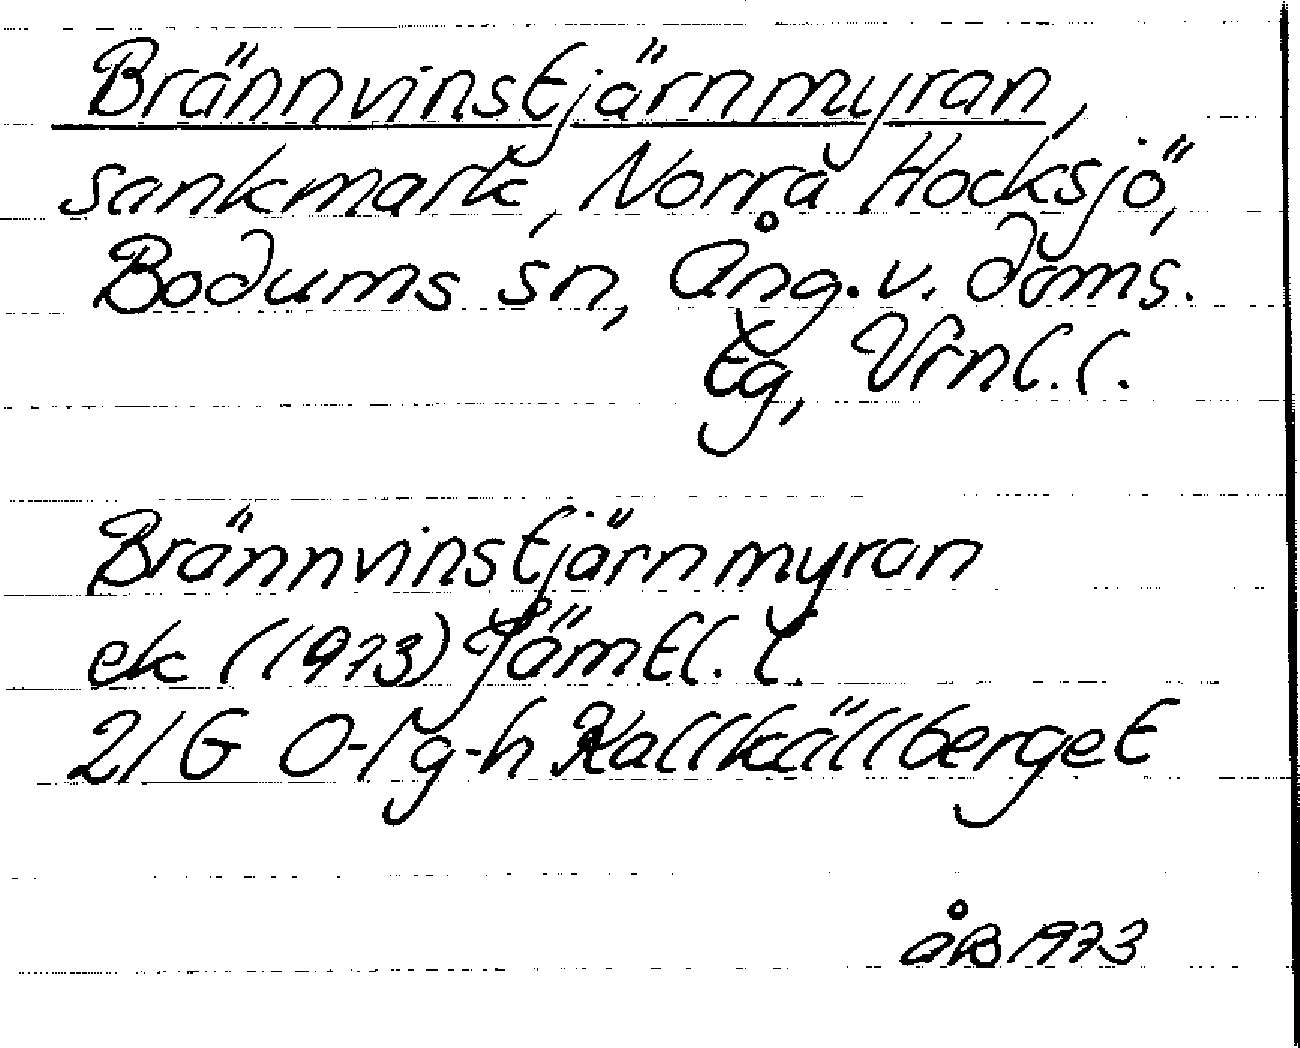 Brännvinstjärnmyran,
sankmark, Norra Hocksjö,
Bodums sn, Ång. v. doms.
tg, Vrnl. l.
Brännvinstjärnmyran
ek (1973) Jämtl. l.
21 G 0-1 g-h Kallkällberget
åB 1973